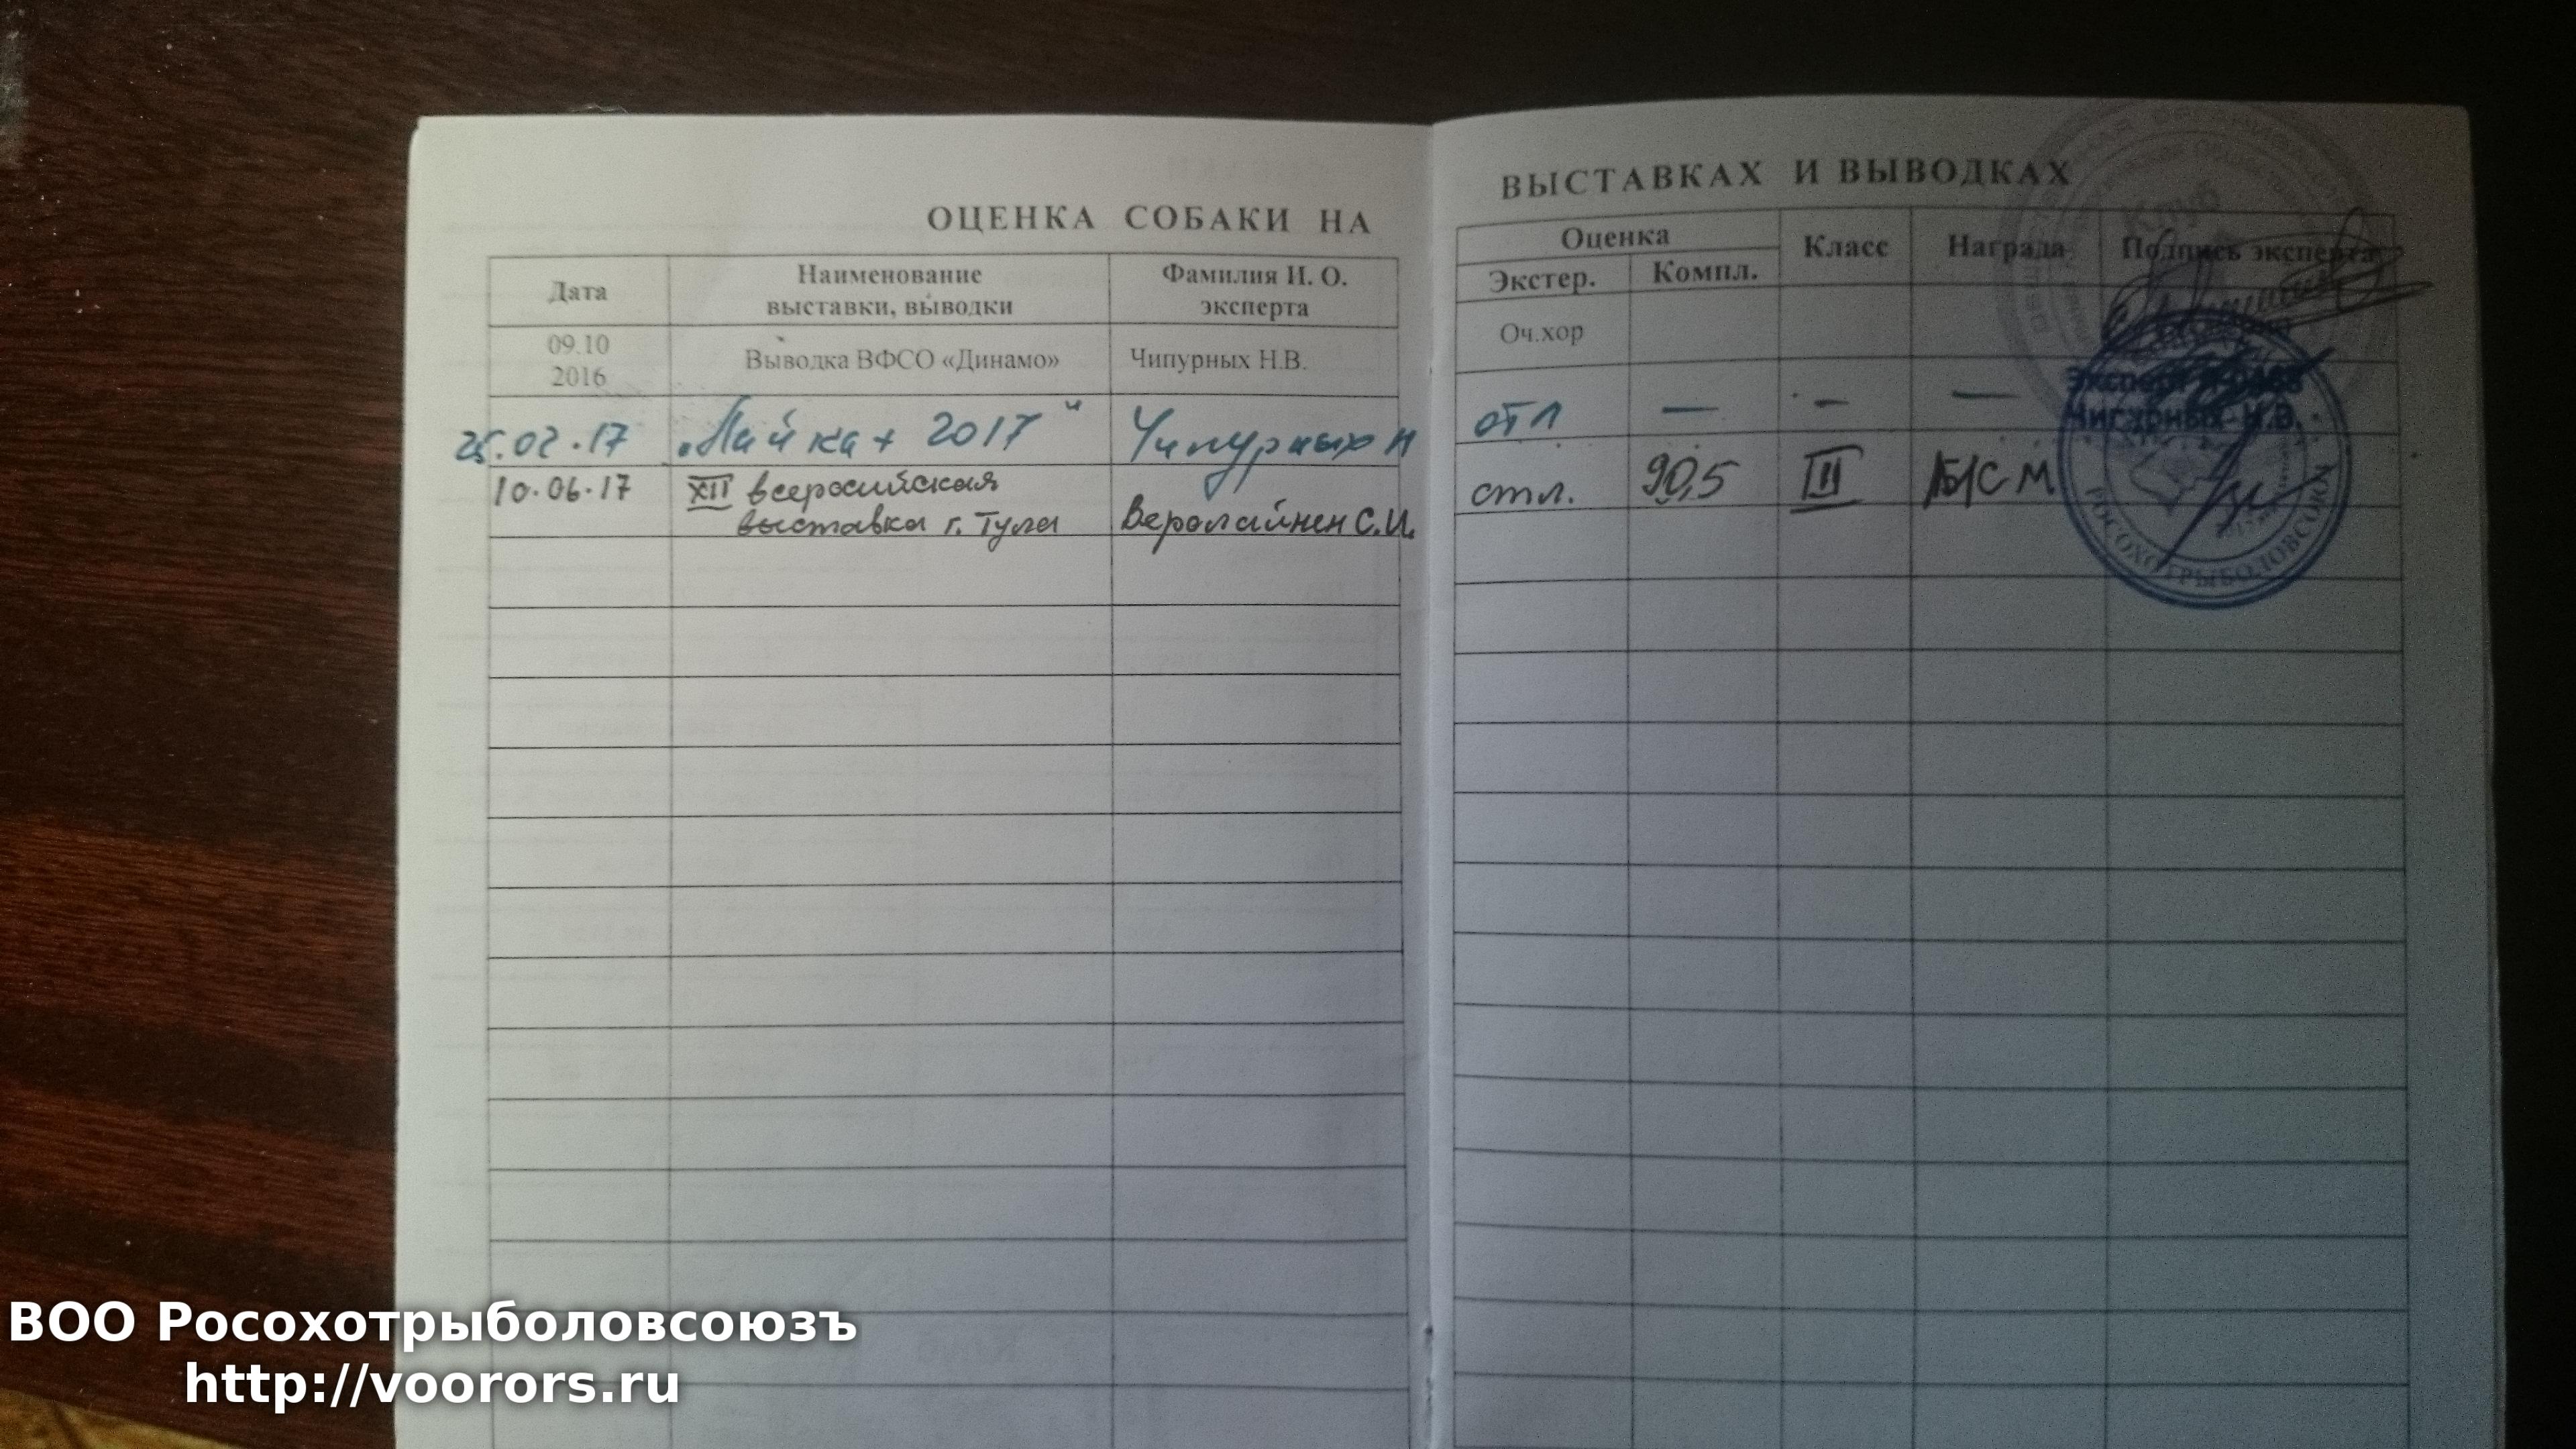 ОЦЕНКА СОБАКИ НА
Дата
Наименование
выставки, выводки
Фамилия И. О.
эксперта
09.10
2016
Выводка ВФСО «Динамо»
Чипурных Н.В.
25.02.17
„Лайка+ 2017"
Чипурных Н
10.06.17
XII всеросийская
выставка г. Тула
Веролайнен С.И.
ВЫСТАВКАХ И ВЫВОДКАХ
Оценка
Экстер.
Компл.
Класс
Награда
Подпись эксперта
Оч.хор
отл
—
—
—
отл.
90,5
II
БСМ
Клуб
Эксперт
Чипурных Н.В.
РОСОХОТРЫБОЛОВСОЮЗ
ВОО Росохотрыболовсоюзъ
http://voorors.ru